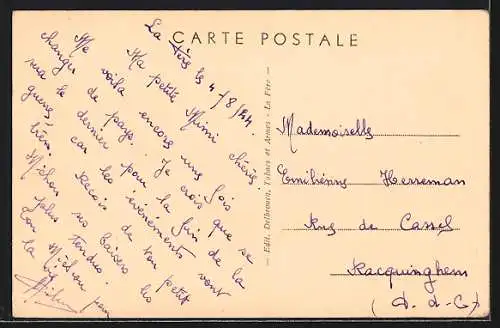 CARTE POSTALE
La Fère le 4/8/44.
Ma petite Mimi chérie.
Me voilà encore une fois
changer de pays. Je crois que se
sera le dernier pour la fin de la
guerre, car les événements vont
bien. Recois de ton petit
Michou ses baisers les
plus tendres.
Ton Michou pour
la vie
— Edit. Delhremen, Tabacs et Armes - La Fère —
Mademoiselle
Emilienne Herreman
Rue de Cassel
Racquinghem
(P. d. C)